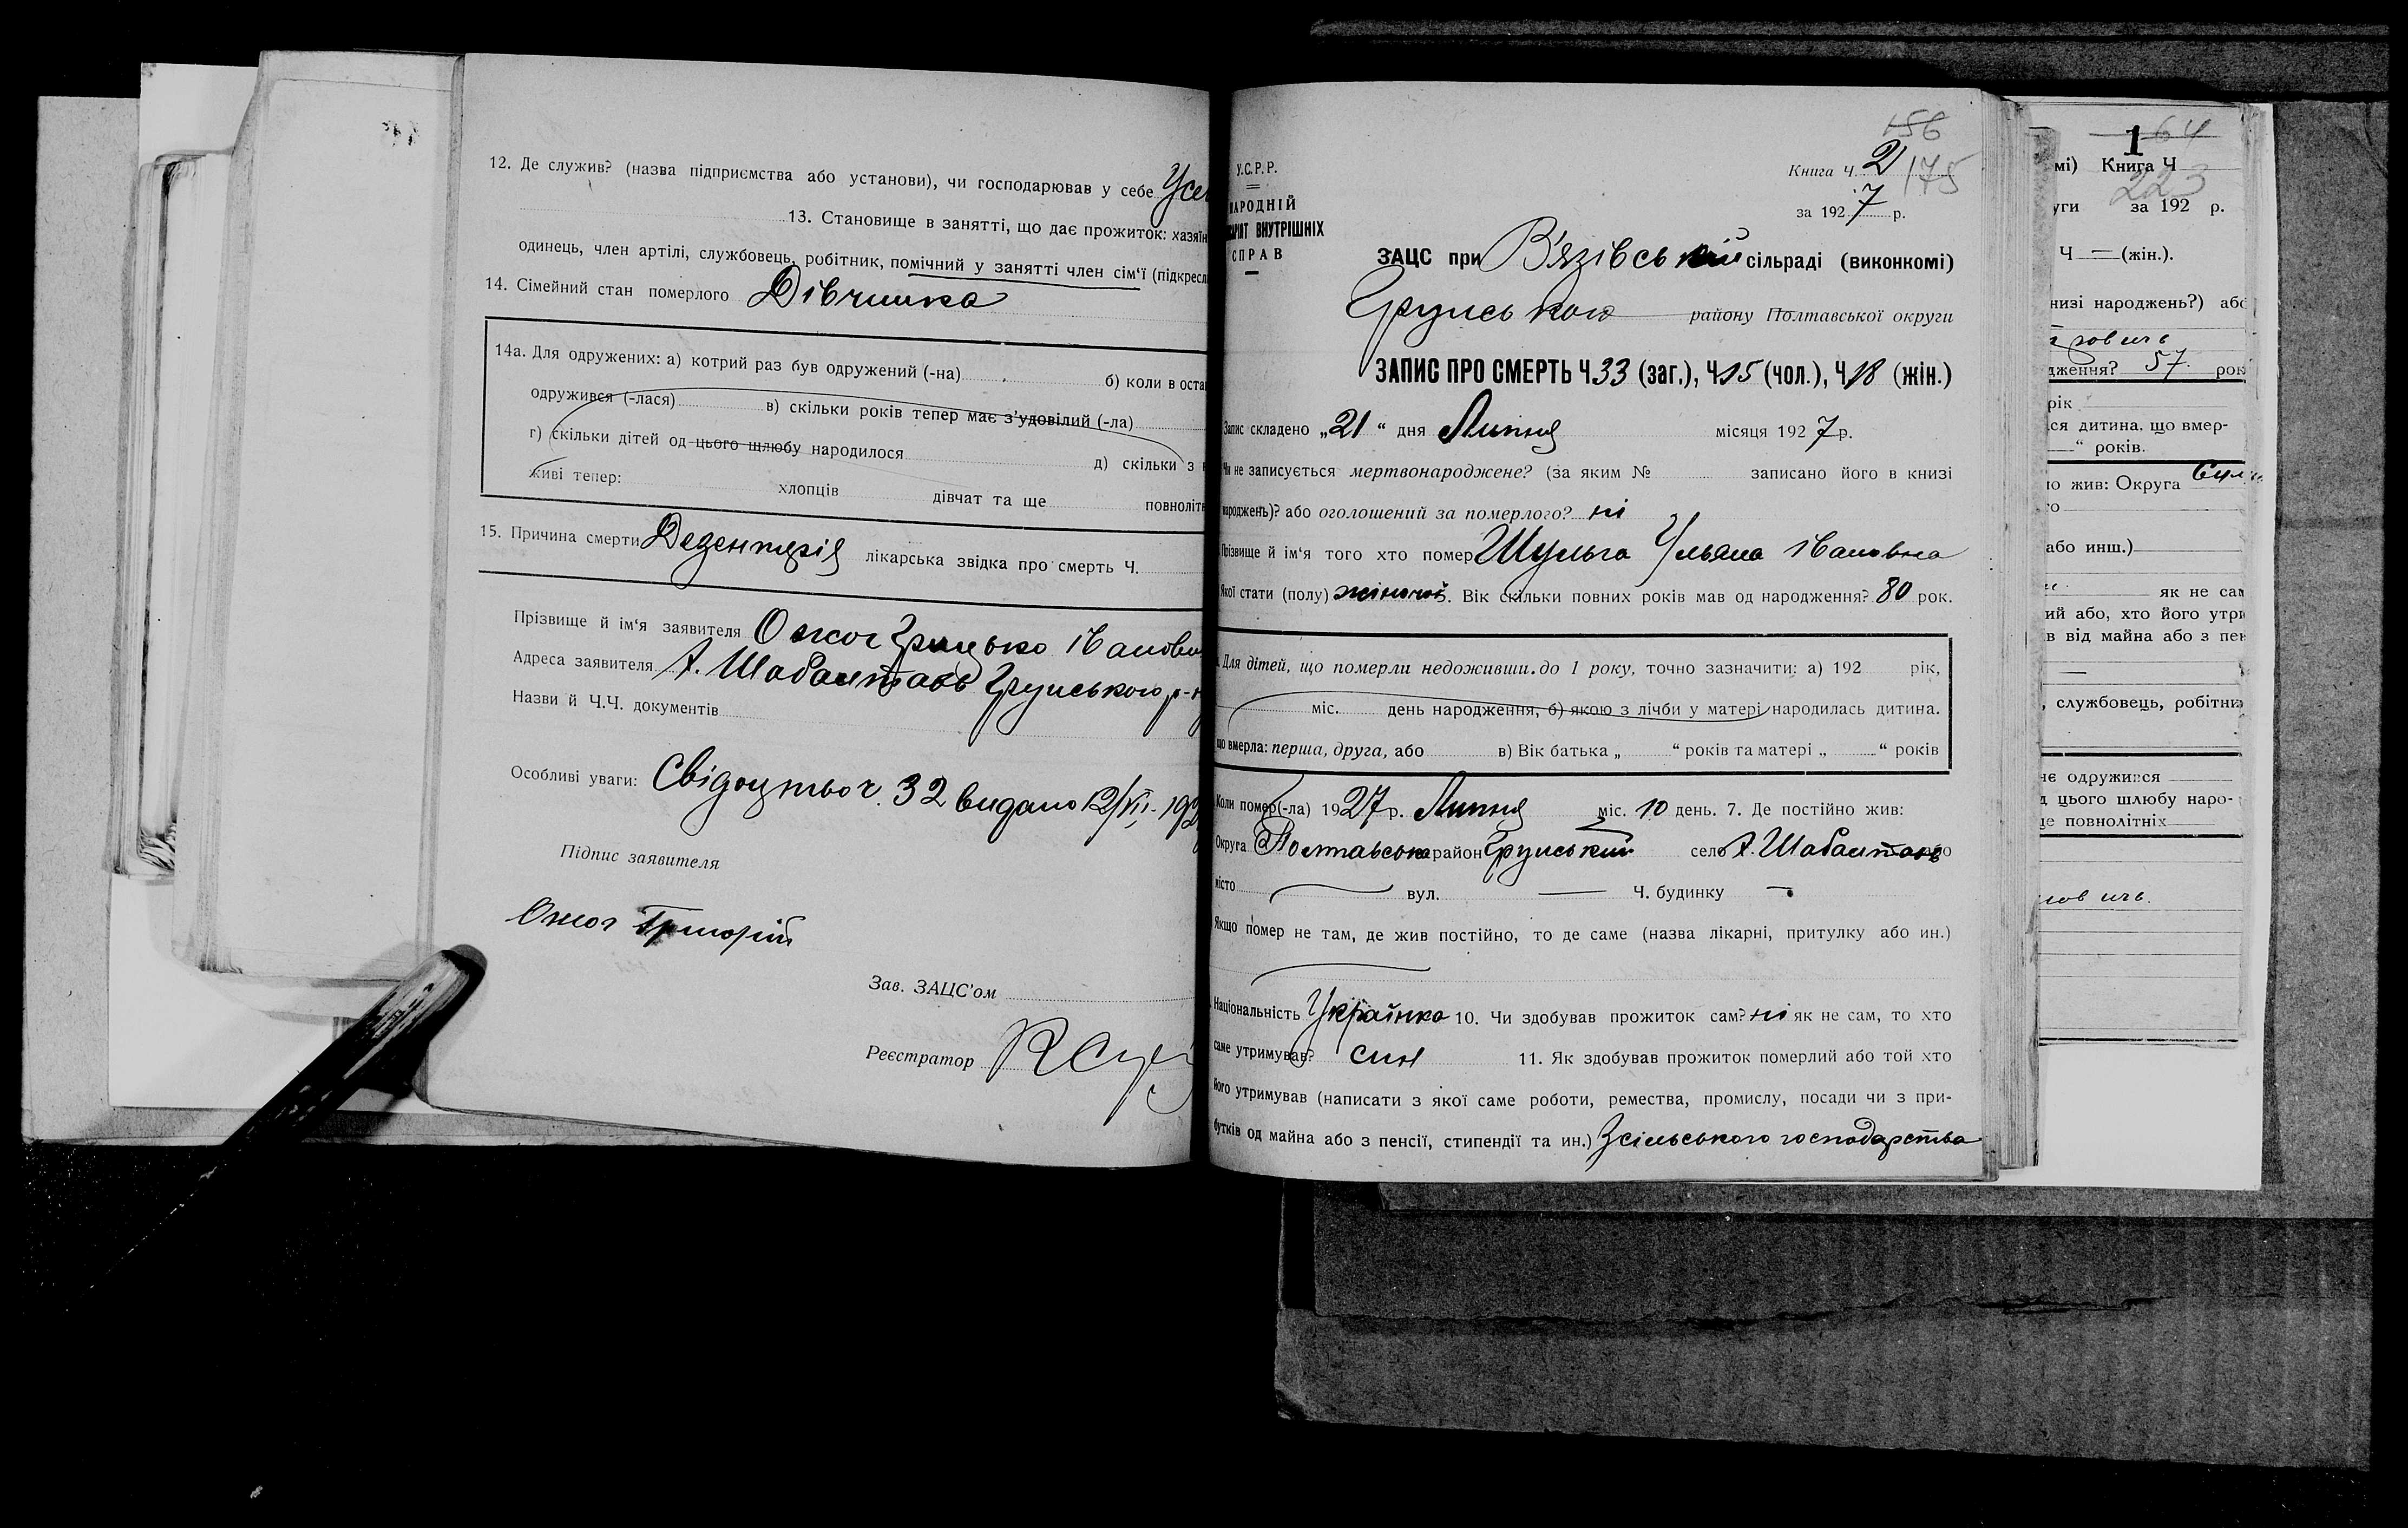 12. Де служив? (назва підприємства або установи), чи господарював у себе
13. Становище в занятті, що дає прожиток: хазяїн
одинець, член артілі, службовець, робітник, помічний у занятті член сім'ї (підкресл
14. Сімейний стан померлого Дівчинка
14а. Для одружених: а) котрий раз був одружений (-на) б) коли в оста
одружився (-лася) в) скільки років тепер має з'удовілий (-ла)
г) скільки дітей од цього шлюбу народилося д) скільки з
живі тепер: хлопців дівчат та ще повноліт
15. Причина смерти Дезентерія лікарська звідка про смерть Ч.
Прізвище й ім'я заявителя Ожог Грицько Іванови
Адреса заявителя Грунського р-н
Назви й Ч.Ч. документів
Особливі уваги: Свідоцтво ч. 32 видано 12/VII-192
Підпис заявителя
Ожог Григорій
Зав. ЗАЦС'ом
Реєстратор
156
У.С.Р.Р.
Книга Ч. 2 175
НАРОДНІЙ
за 1927 р.
ВНУТРІШНІХ
СПРАВ
ЗАЦС при В'язівській сільраді (виконкомі)
Грунського району Полтавської округи
ЗАПИС ПРО СМЕРТЬ Ч 33 (заг.), Ч 15 (чол.), Ч 18 (жін.)
Запис складено „21“ дня Липня місяця 1927 р.
Чи не записується мертвонароджене? (за яким № записано його в книзі
народжень)? або оголошений за померлого? ні
Прізвище й ім'я того хто помер Шульга Ульяна Івановна
Якої стати (полу) жіночої 5. Вік скільки повних років мав од народження? 80 рок.
Для дітей, що померли недоживши до 1 року, точно зазначити: а) 192 рік,
міс. день народження, б) якою з лічби у матері народилась дитина.
що вмерла: перша, друга, або в) Вік батька „ “ років та матері „ “ років
Коли помер(-ла) 1927 р. Липня міс. 10 день. 7. Де постійно жив:
Округа Полтавська район Грунський село
місто вул. — Ч. будинку —
Якщо помер не там, де жив постійно, то де саме (назва лікарні, притулку або ин.)
Національність Українка 10. Чи здобував прожиток сам? ні як не сам, то хто
саме утримував? син 11. Як здобував прожиток померлий або той хто
його утримував (написати з якої саме роботи, ремества, промислу, посади чи з при-
бутків од майна або з пенсії, стипендії та ин.) З сільського господарства
1 64
мі) Книга Ч
223
уги за 192 р.
Ч — (жін.).
низі народжень?) або
дження? 57. рок
рік
ся дитина, що вмер-
“ років.
о жив: Округа
або инш.)
як не сам
ий або, хто його утри
в від майна або з пен
, службовець, робітни
не одружився
д цього шлюбу наро-
ще повнолітніх